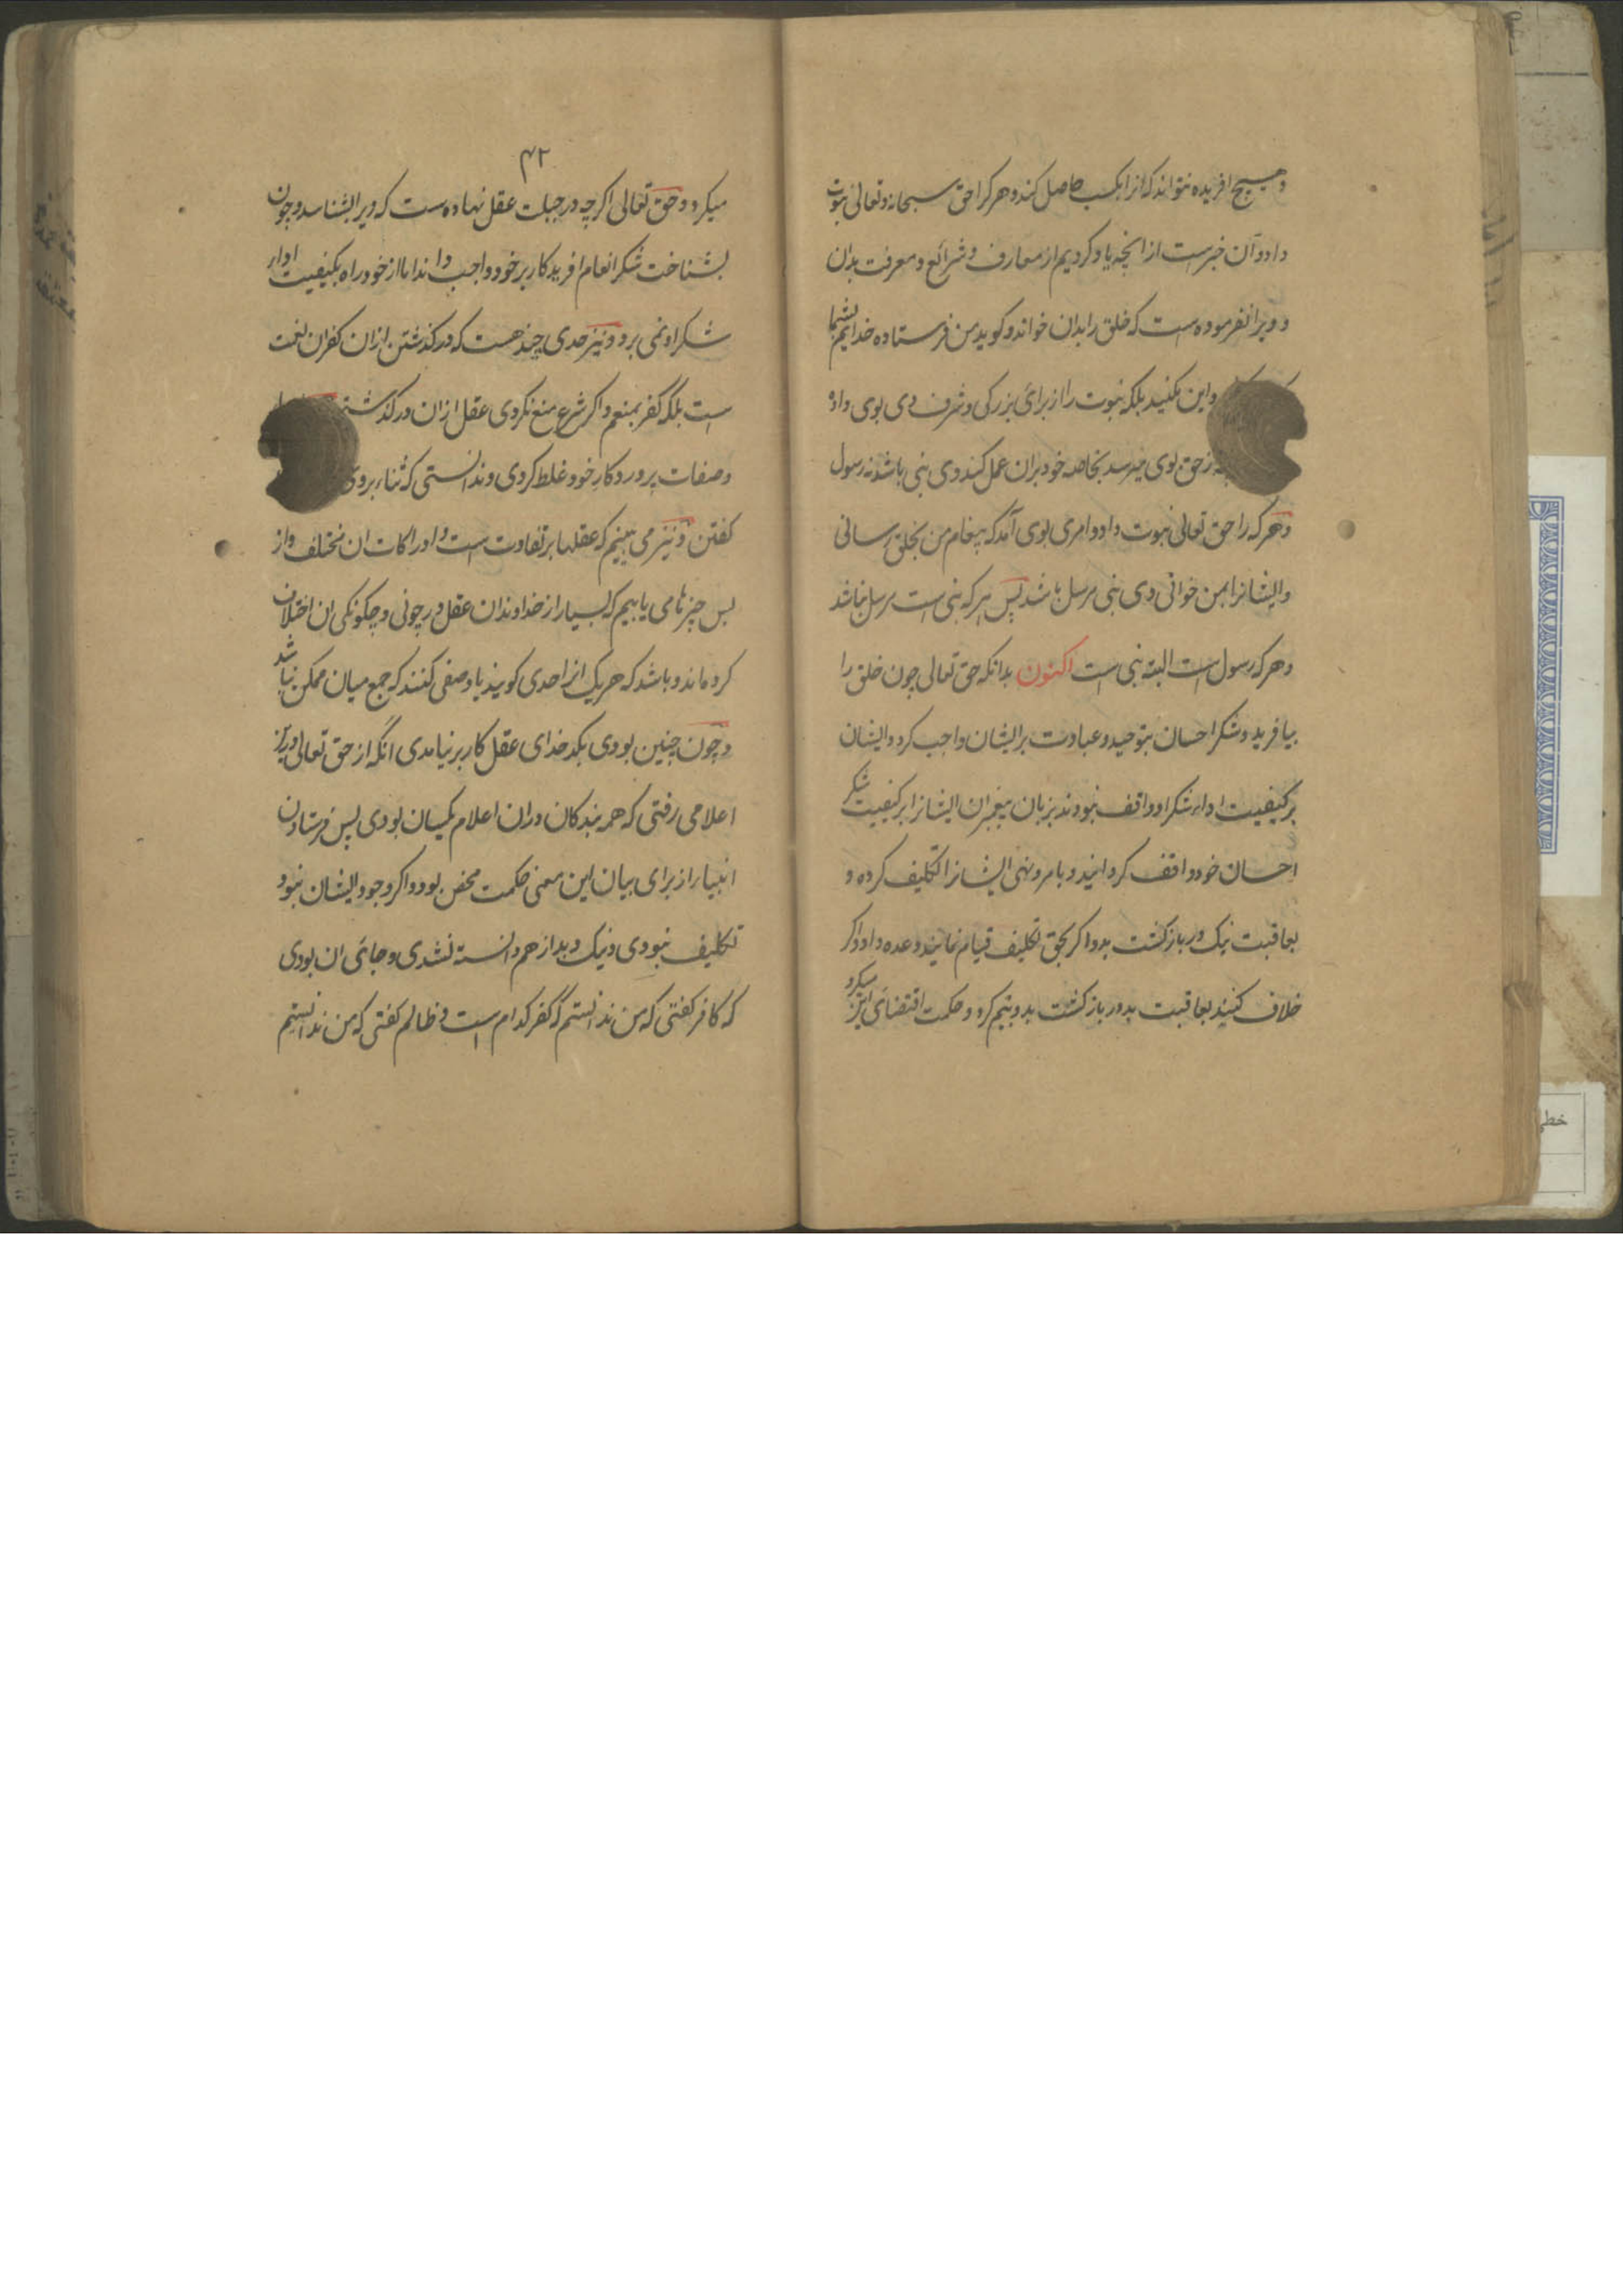 وهیچ افریده نتواند که انرا بکسب حاصل کند و هر کرا حق سبحانه و تعالی نبوت
داد و آن خبرست از انچه یاد کردیم از معارف و شرائع و معرفت بدان
و ویرا نفرموده است که خلق را بدان خواند و کوید من فرستاده خدایم بشما
واین مکنید بلکه نبوت را از برای بزرکی و شرف وی بوی داده
زحق بوی میرسد بخاصه خود بران عمل کند وی نبی باشد نه رسول
و هر که را حق تعالی نبوت داد و امری بوی آمد که پیغام من بخلق رسانی
و ایشانرا بمن خوانی وی نبی مرسل باشد پس هر که نبی است مرسل نباشد
و هر که رسول است البته نبی است اکنون بدانکه حق تعالی چون خلق را
بیافرید و شکر احسان بتوحید و عبادت بر ایشان واجب کرد و ایشان
بر کیفیت اداء شکر او واقف نبودند بزبان پیغمبران ایشانرا بر کیفیت شکر
احسان خود واقف کردانید و بامر و نهی ایشانرا تکلیف کرده و
بعاقبت نیک در بازکشت بدو اکر بحق تکلیف قیام نمایند وعده داد و اکر
خلاف کنند بعاقبت بد در بازکشت بدو بیم کرد و حکمت اقتضای این میکرد
۴۲
میکرد و حق تعالی اکرچه در جبلت عقل نهاده است که ویرا بشناسد و چون
بشناخت شکر انعام افریدکار بر خود واجب داند اما از خود راه بکیفیت اداء
شکر او نمی برد و نیز حدی چند هست که در کذشتن ازان کفران نعمت
است بلکه کفر بمنعم و اکر شرع منع نکردی عقل ازان در کذشتی
وصفات پروردکار خود غلط کردی و ندانستی که ثناء بروی
کفتن و نیز می بینیم که عقلها بر تفاوت است و ادراکات ان مختلف و از
بس چیزها می یابیم که بسیار از خداوندان عقل در چونی و چکونکی ان اختلاف
کرده اند و باشد که هر یک انرا حدی کویند یا وصفی کنند که جمع میان ممکن نباشد
و چون چنین بودی بکدخدای عقل کار برنیامدی انکه از حق تعالی و نیز
اعلامی رفتی که همه بندکان دران اعلام یکسان بودی پس فرستادن
انبیا را از برای بیان این معنی حکمت محض بود و اکر وجود ایشان نبود
تکلیف نبودی و نیک و بد از هم دانسته نشدی و جائی ان بودی
که کافر کفتی که من ندانستم که کفر کدام است و ظالم کفتی که من ندانستم
خطی